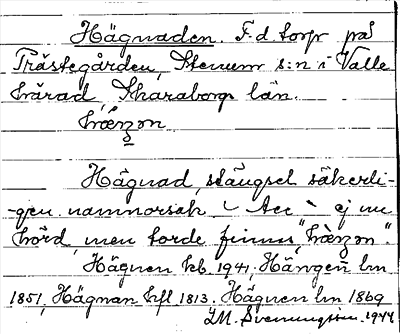 Hägnaden. F.d. torp på
Prästegården, Stenum s:n i Valle
härad, Skaraborgs län.
hæŋon
Hägnad, stängsel säkerli-
-gen namnorsak. acc ej nu
hörd, men torde finnas
Hägnen kb. 1941, Hängen lm
1851, Hägnan hfl 1813. Hägnen lm 1869
I.M. Svenungsson. 1944